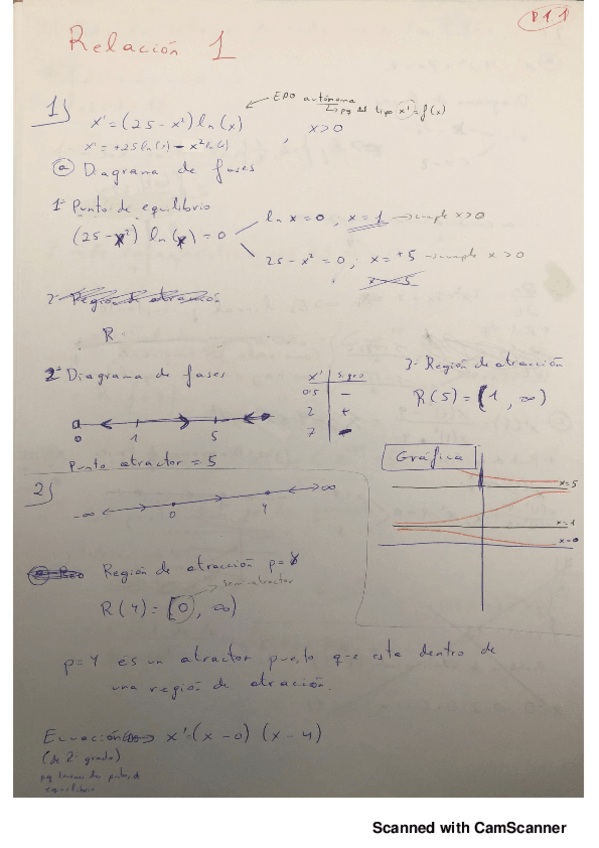 P11
Relación 1
1) x' = (25 - x²) ln(x) ← EDO autónoma
↳ tipo x' = f(x)
, x>0
x' = +25 ln(x) - x² ln(x)
ⓐ Diagrama de fases
1º Punto de equilibrio
(25 - x²) ln(x) = 0
ln x = 0 ; x = 1 → cumple x>0
25 - x² = 0 ; x = +5 → cumple x>0
R
2º Diagrama de fases
0 1 5
x' signo
0.5 -
2 +
7 -
3º Región de atracción
R(5) = (1, ∞)
Punto atractor = 5
Gráfica
x=5
x=1
x=0
2)
-∞ 0 4 ∞
Región de atracción p=
semi-atractor
R(4) = [0, ∞)
p=4 es un atractor puesto que esta dentro de
una región de atracción.
Ecuación x' = (x-0) (x-4)
(de 2º grado)
pq tenemos dos puntos de
equilibrio
Scanned with CamScanner